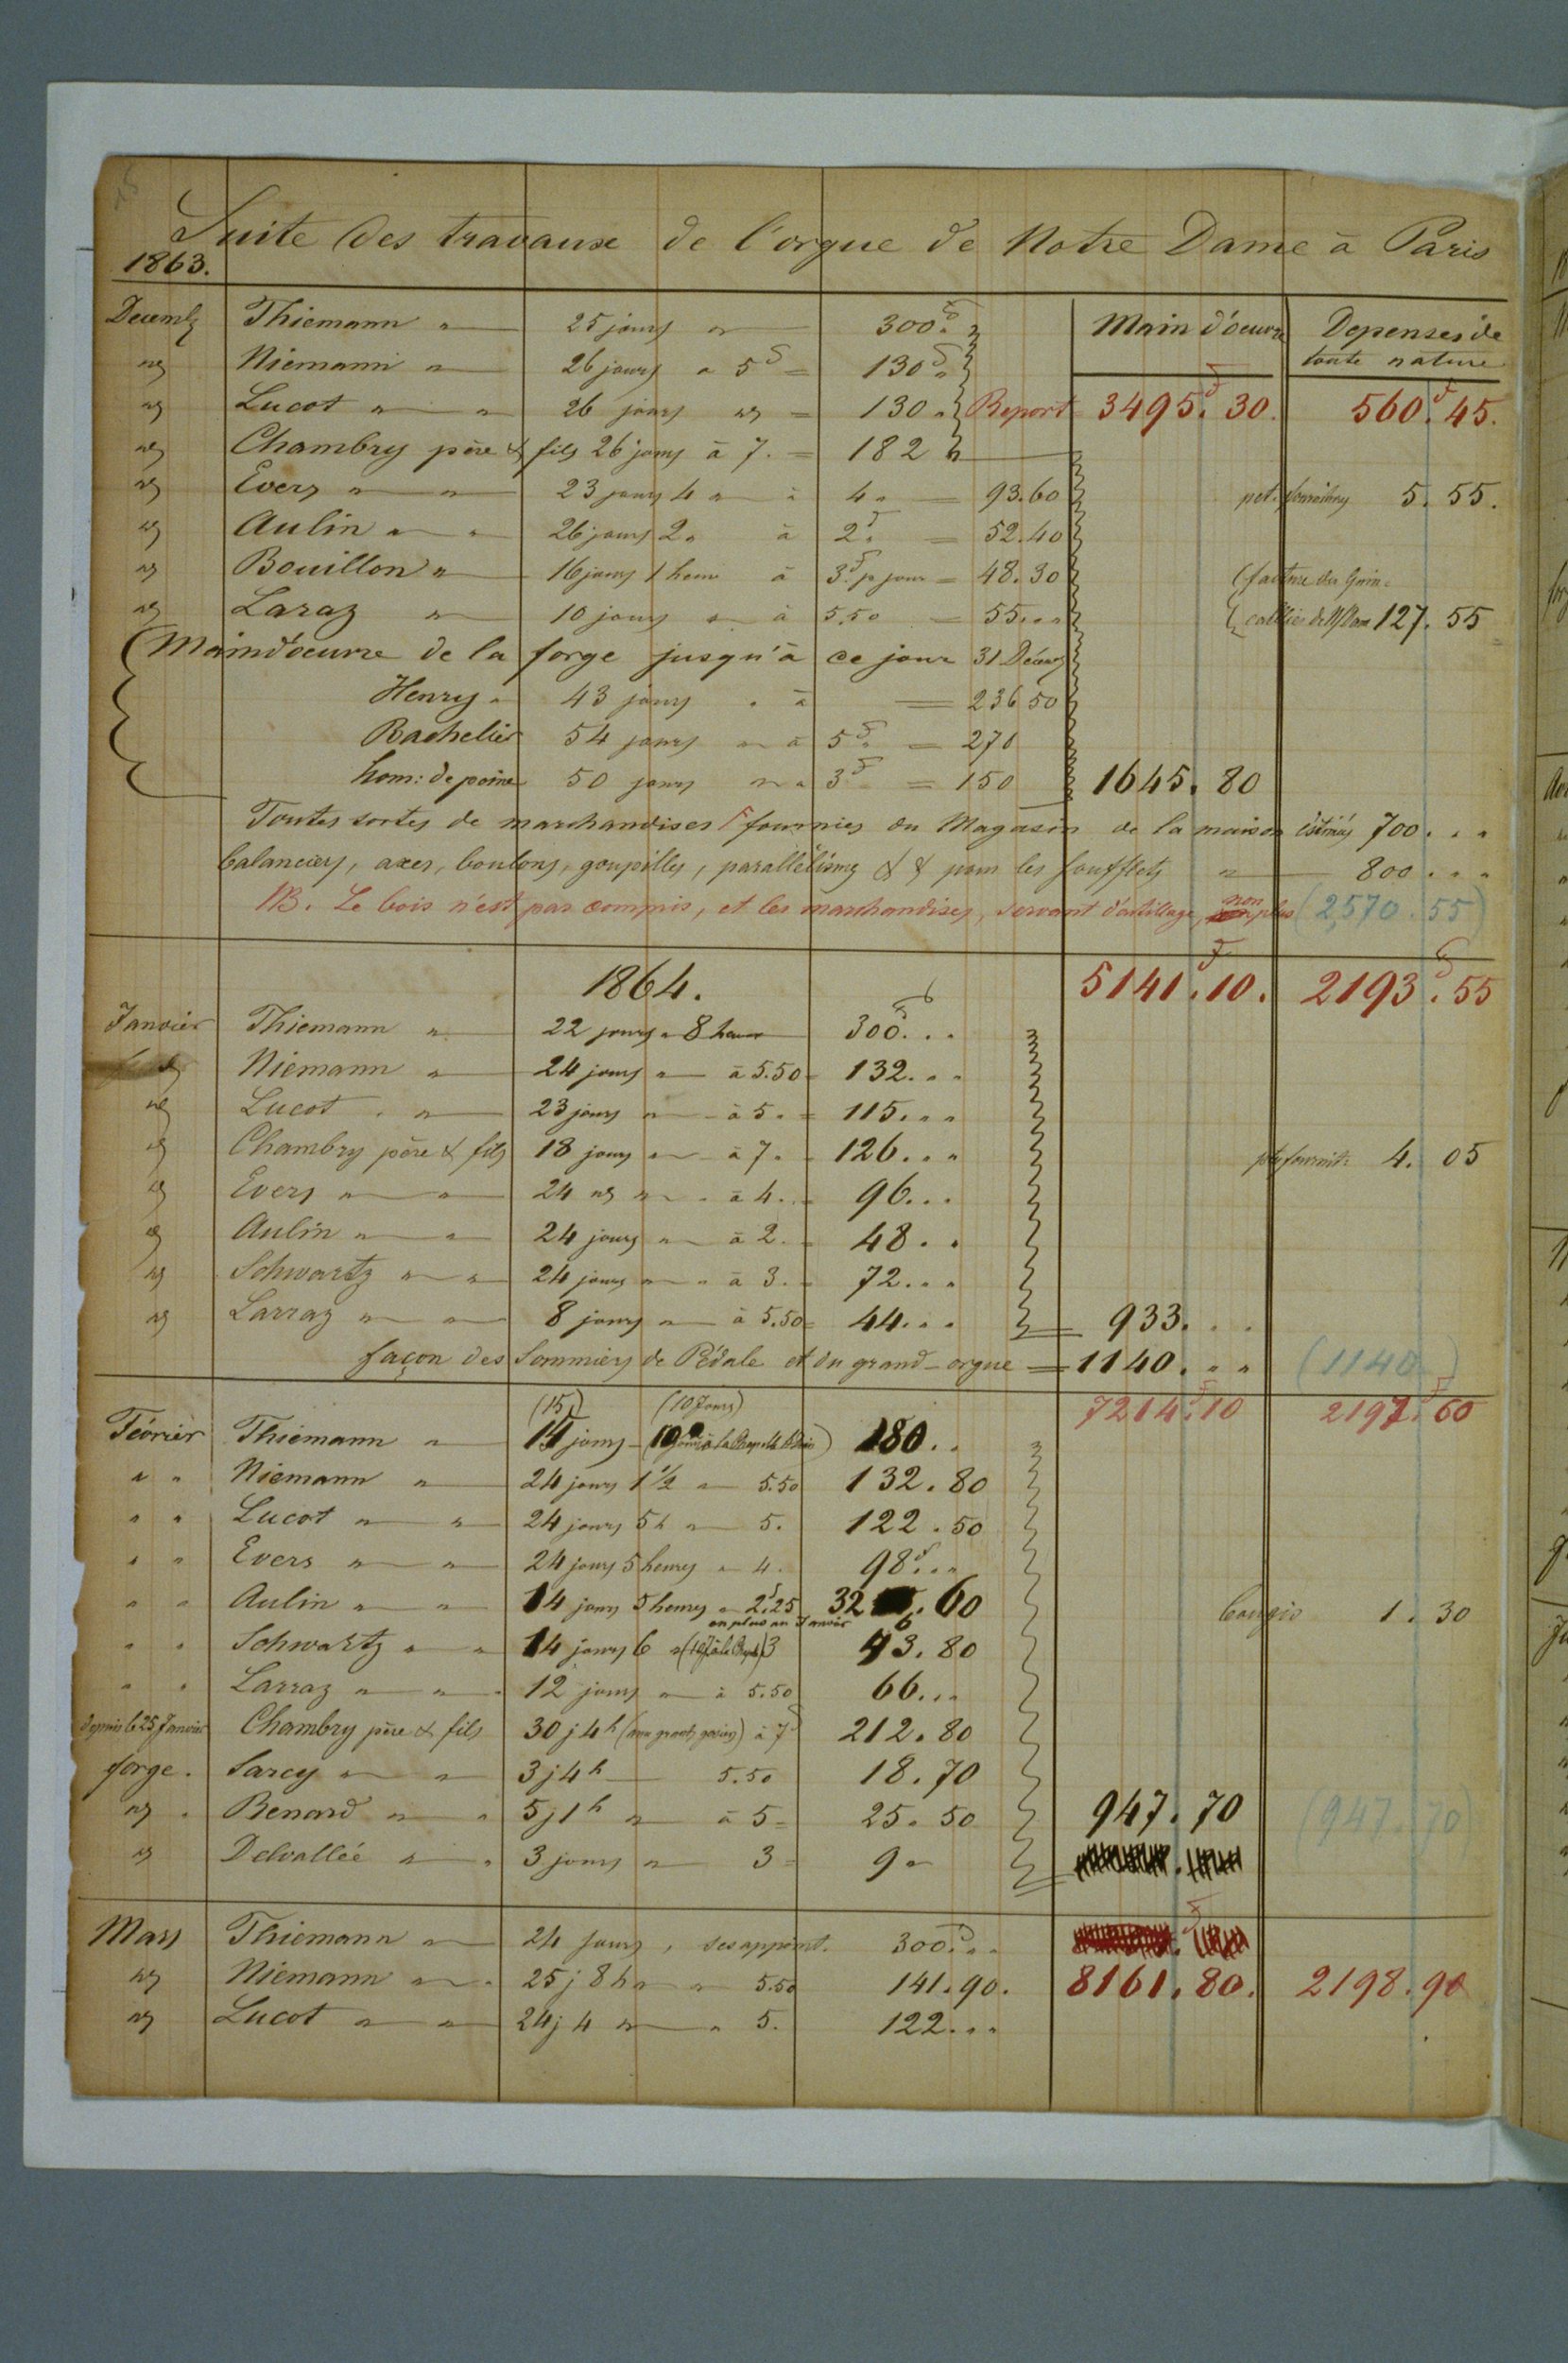 Suite des travaux de l'orgue de Notre Dame à Paris
1863.
Main d'oeuvre Depenses de toute nature
Decemb Thiemann " 25 jours " 300f "
" Niemann " 26 jours " 5f = 130f "
" Lucot " " 26 jours " = 130 " Report 3495f. 30. 560f. 45.
" Chambry père & fils 26 jours à 7. = 182 "
" Evers " " 23 jours 4 " à 4 " = 93.60 5. 55.
" Aulin " " 26 jours 2 " à 2f " = 52.40
" Bouillon " 16 jours 1 heur à 3f. p jour = 48.30 (facture du Quin=
" Laraz " 10 jours " à 5.50 = 55 . . . 127. 55
(Maind'oeuvre de la forge jusqu'à ce jour 31 Décemb
Henry " 43 jours " à = 236 50
Bachelier 54 jours " à 5f " = 270
hom: de peine 50 jours " à 3f = 150 1645. 80
Toutes sortes de marchandises fournies du Magasin de la maison 700 . . .
balanciers, axes, boulons, goupilles, parallélismes & & pour les soufflets " 800 . . .
NB. Le bois n'est pas compris, et les marchandises, servant d'outillage, non plus (2,570.55)
1864. 5141f.10. 2193f.55
Janvier Thiemann " 22 jours " 8 heur 300f. . .
" Niemann " 24 jours " à 5.50 = 132. . .
" Lucot . " 23 jours " à 5. = 115. . .
" Chambry père & fils 18 jours " à 7. = 126. . . 4. 05
" Evers " " 24 " " à 4. . = 96. . .
" Aulin " " 24 jours " à 2. = 48. .
" Schwartz " " 24 jours " " à 3. = 72. . .
" Larraz " " 8 jours " à 5.50 = 44. . . 933. . .
façon des Sommiers de Pédale et du grand-orgue = 1140. " " (1140)
7214f.10 2197f.60
(15) (10 Jours)
Février Thiemann " 14 jours 180. .
" " Niemann " 24 jours 1 1/2 " 5.50 132.80
" " Lucot " " 24 jours 5 h " 5. 122.50
" " Evers " " 24 jours 5 heures " 4. 98f. . .
" " Aulin " " 14 jours 5 heures " 2f.25 32 .60 1. 30
en plus en Janvier
" " Schwartz " " 14 jours 6 3 43.80
" " Larraz " " 12 jours " à 5.50 66. . .
depuis le 25 Janvier Chambry père & fils 30 j 4h à 7f 212.80
forge. Sarcy " " 3 j 4h 5.50 18.70
" . Benard " " 5 j 1h " à 5 = 25.50 947.70 (947.70)
" Delvallée " " 3 jours " 3 = 9 "
Mars Thiemann " 24 Jours, ses appoint. 300f. . .
" Niemann " 25 j 8 h " " 5.50 141.90. 8161.80. 2198.90
" Lucot " " 24 j 4 " " 5. 122. . .